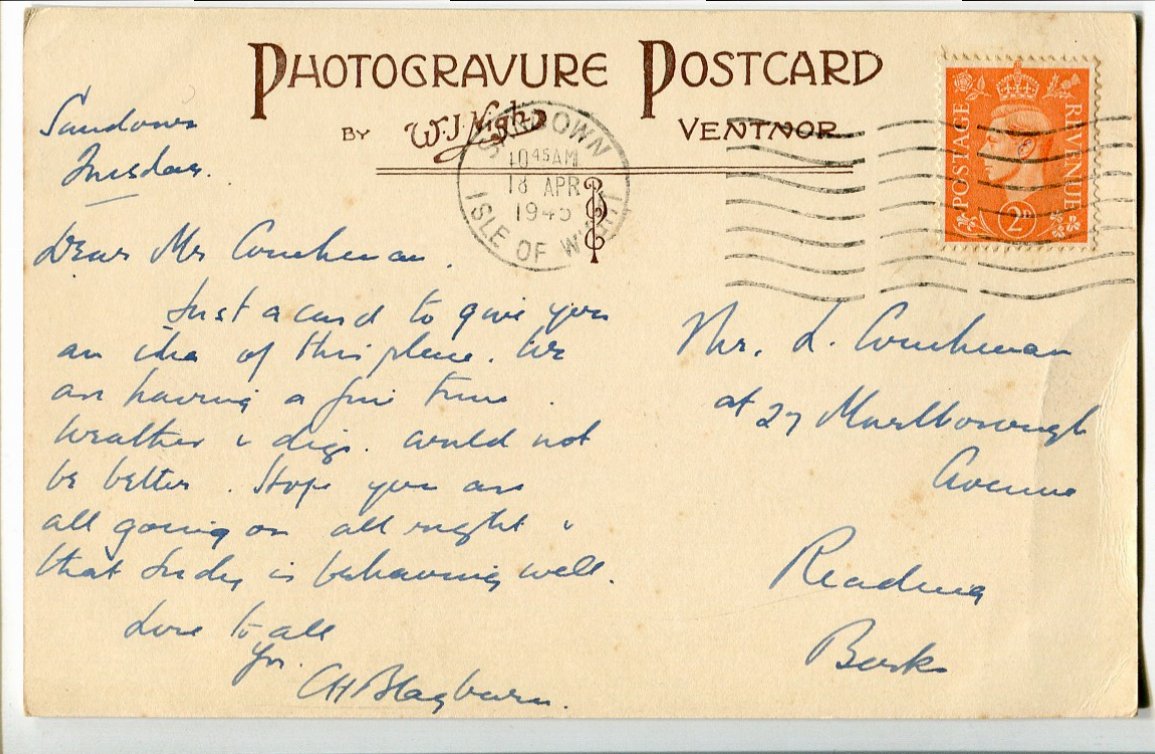 PHOTOGRAVURE POSTCARD
BY W.J. Nigh VENTNOR
SANDOWN
10 45 AM
18 APR
194
ISLE OF WIGHT
POSTAGE REVENUE
2D
Sandown
Tuesday.
Dear Mr Coucheman.
Just a card to give you
an idea of this place. We
are having a fine time.
Weather & digs. could not
be better. Hope you are
all going on all right &
that Judy is behaving well.
Love to all
Yrs.
CH Blagburn.
Mr. L. Coucheman
at 27 Marlborough
Avenue
Reading
Berks